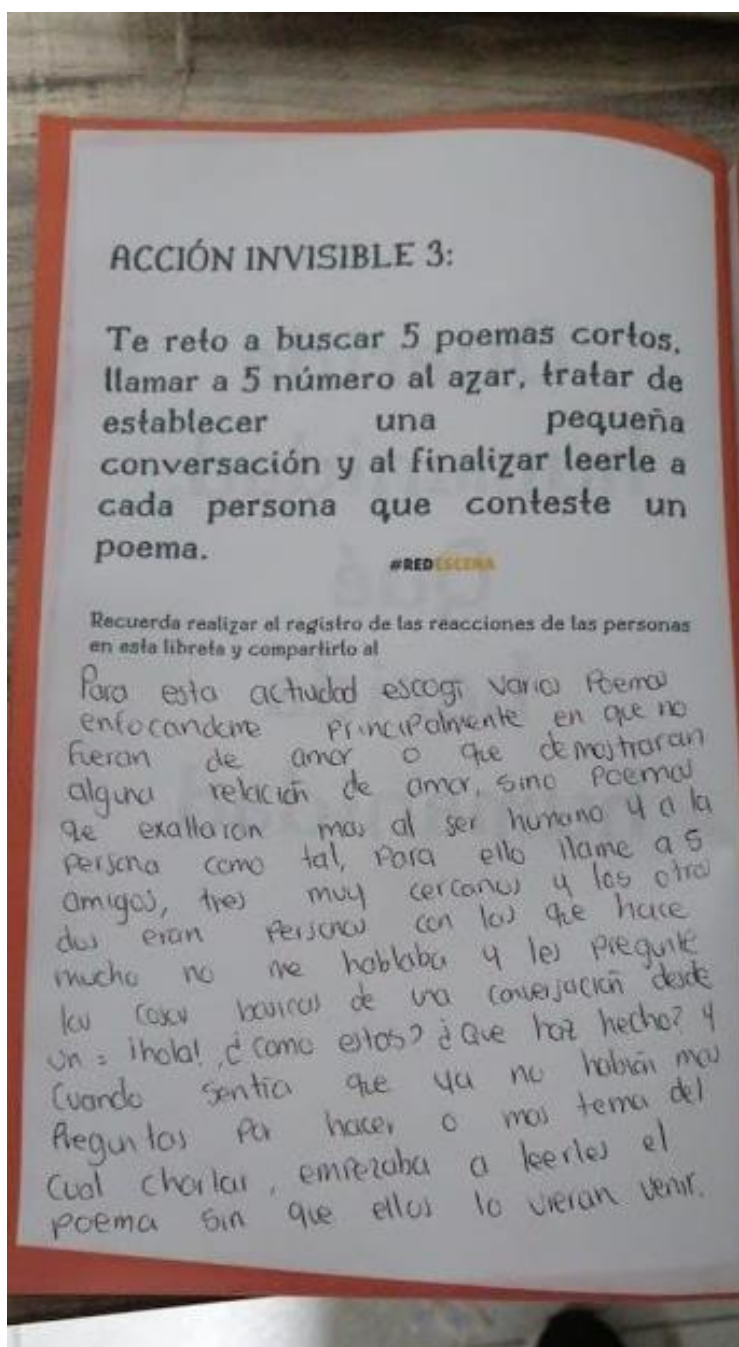 ACCIÓN INVISIBLE 3:
Te reto a buscar 5 poemas cortos,
llamar a 5 número al azar, tratar de
establecer una pequeña
conversación y al finalizar leerle a
cada persona que conteste un
poema.
#REDESCENA
Recuerda realizar el registro de las reacciones de las personas
en esta libreta y compartirlo al
Para esta actividad escogi varios Poemas
enfocandome principalmente en que no
fueran de amor o que demostraran
alguna relación de amor, sino Poemas
que exaltaron mas al ser humano y a la
persona como tal, Para ello llame a 5
amigos, tres muy cercanos y los otros
dos eran Personas con las que hace
mucho no me hablaba y les pregunte
las cosas basicas de una conversación desde
un = ¡hola!, ¿Como estas? ¿Que haz hecho? y
Cuando sentia que ya no habian mas
Preguntas por hacer o mas tema del
Cual charlar, empezaba a leerles el
poema sin que ellos lo vieran venir.